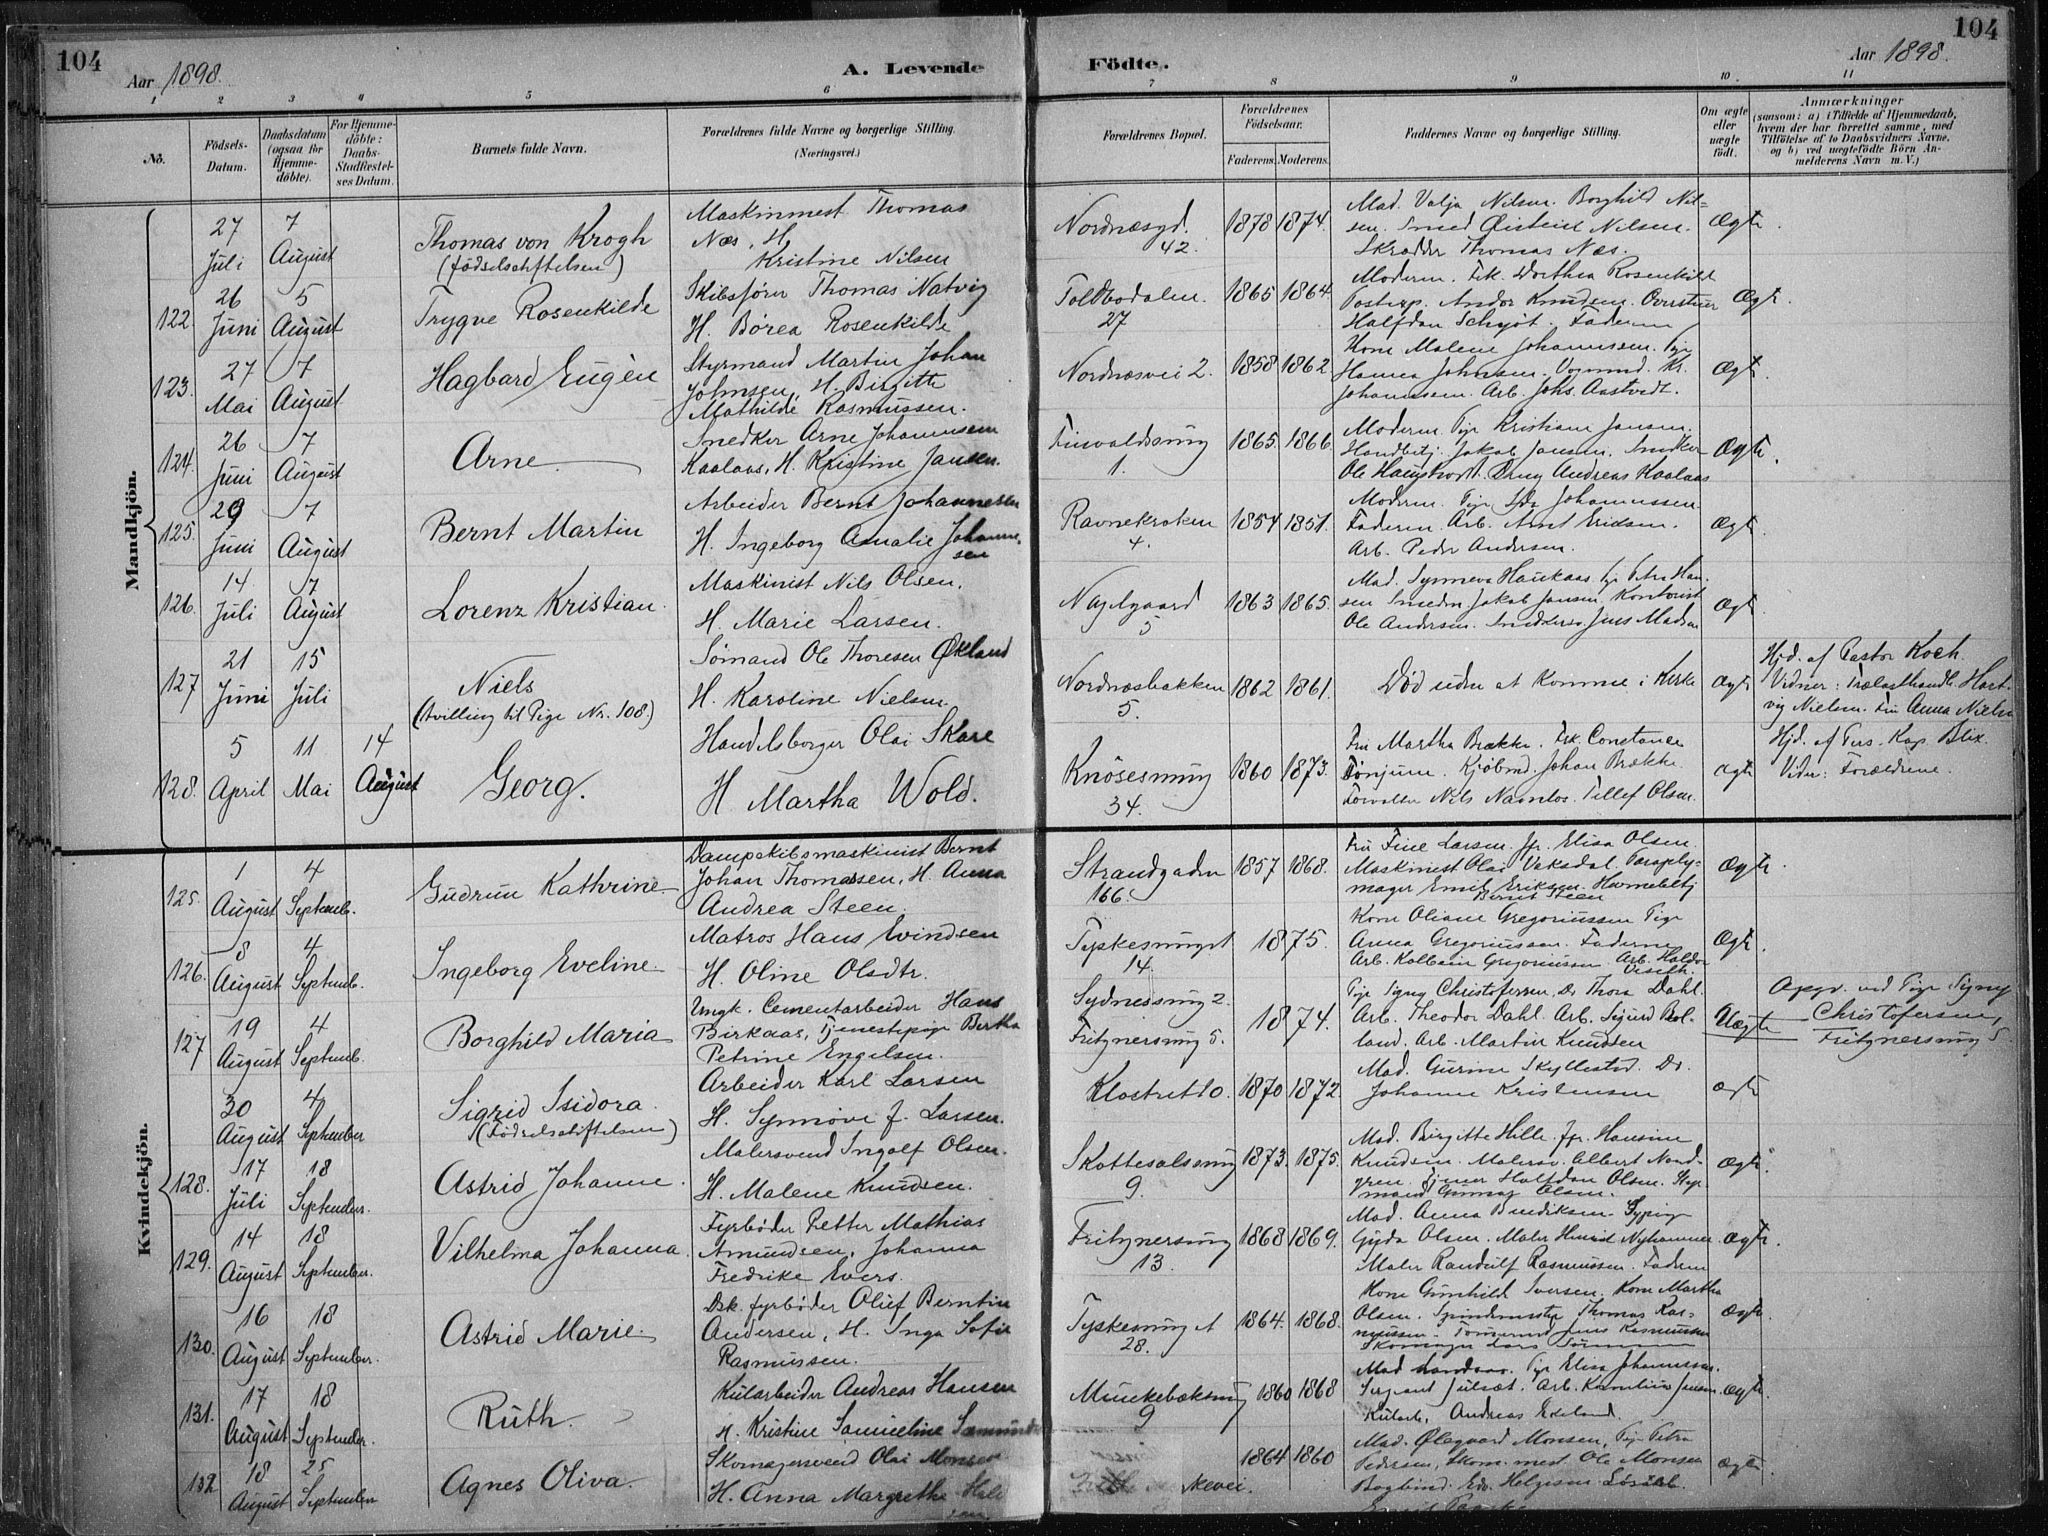 104
Aar 1898.
A. Levende
Födte.
Aar 1898.
104
1 2 3 4 5 6 7 8 9 10. 11
No.
Födsels-Datum.
Daabsdatum (ogsaa for Hjemme-döbte).
For Hjemme-döbte: Daabs-Stadfæstel-ses Datum.
Barnets fulde Navn.
Forældrenes fulde Navne og borgerlige Stilling.
(Næringsvei.)
Forældrenes Bopæl.
Forældrenes Födselsaar.
Faderens. Moderens.
Faddernes Navne og borgerlige Stilling.
Om ægte eller uægte födt.
Anmærkninger
(saasom: a) i Tilfælde af Hjemmedaab, hvem der har forrettet samme, med Tilföielse af to Daabsvidners Navne, og b) ved uægtefödte Börn An-melderens Navn m. V.)
Mandkjön.
27 Juli 7 August Thomas von Krogh (födselsstiftelsen)
Maskinmest Thomas
Næs, H.
Kristine Nilsen
Nordnæsgd. 42. 1878 1874.
Mad. Valja Nilsen. Borghild Nil-
sen. Smed Øistein Nilsen.
Skrædder Thomas Næs.
Ægte
122. 26 Juni 5 August Trygve Rosenkilde
Skibsfører Thomas Natvig
H. Børea Rosenkilde
Toldbodalm. 27 1865 1864.
Moderen. Frk. Dorthea Rosenkilde
Postexp. Andor Knudsen.
Halfdan Schjøt. Faderen
Ægte
123. 27 Mai 7 August Hagbard Eugèn
Styrmand Martin Johan
Johnsen, H. Birgitte
Mathilde Rasmussen.
Nordnæsvei 2. 1858 1862
Kone Malene Johannessen. Pige
Hanna Johnsen. Vognmd. Kr.
Johannessen. Arb. Johs. Aastvedt.
Ægte
124. 26 Juni 7 August Arne
Snedker Arne Johannesen
Kaalaas, H. Kristine Jansen.
1. 1865. 1866.
Moderen. Pige Kristiane Jansen.
Handbetj. Jakob Jansen. Snedker
Andreas Kaalaas
Ægte.
125. 29 Juni 7 August Bernt Martin
Arbeider Bernt Johannesen
H. Ingeborg Amalie Johanne-
sen
Ravnekroken 4. 1854 1851.
Moderen. Pige Ida Johannessen
Faderen. Arb. Arnt Eriksen.
Arb. Peder Andersen.
Ægte
126. 14 Juli 7 August Lorenz Kristian.
Maskinist Nils Olsen.
H. Marie Larsen.
Nagelgaard 5 1863 1865.
Mad. Synneva Haukaas. Pige Petra Han-
sen. Smedm. Jakob Jansen. Kontorist
Ole Andersen. Snedkersv. Jens Madsen
Ægte
127 21 Juni 15 Juli Niels (tvilling til Pige Nr. 108.)
Sømand Ole Thoresen Økland
H. Karoline Nielsen.
Nordnæsbakken 5. 1862 1861.
Død uden at komme i Kirke
Ægte
Hjd. af Pastor Koch.
Vidner: Trælasthandl. Hart-
vig Nielsen. Fru Anna Nielsen
128. 5 April 11 Mai 14 August Georg.
Handelsborger Olai Skare
H. Martha Wold.
Knösesmug 34. 1860 1873.
Fru Martha Brække. Frk. Constance
Tönjum. Kjöbmd. Johan Brække.
Forvalter Nils Navnlos. Tellef Olsen.
Ægte
Hjd. af Pers. Kap. Blix.
Vidner: Forældrene.
Kvindekjön.
125. 1 August 4 Septemb. Gudrun Kathrine
Dampskibsmaskinist Bernt
Johan Thomassen, H. Anna
Andrea Steen.
Strandgaden 166. 1857 1868.
Fru Fine Larsen. Jfr. Elisa Olsen.
Maskinist Olai Vaksdal. Paraply-
mager Emil Eriksen. Havnebetj
Bernt Steen
Ægte
126. 8 August 4 Septemb. Ingeborg Eveline.
Matros Hans Evindsen
H. Oline Olsdtr.
Tyskesmuget 14. 1875.
Kone Oliane Gregoriussen Pige
Anna Gregoriussen. Faderen
Arb. Kolbein Gregoriussen Arb. Haldor
Ægte.
127 19 August 4 Septemb. Borghild Maria
Ungk. Cementarbeider Hans
Birkaas, Tjenestepige Bertha
Petrine Engelsen.
Sydnessmug 2.
Fritznersmug 5. 1874.
Pige Signy Christofersen, Do Thora Dahl.
Arb. Theodor Dahl. Arb. Sigurd Bol-
land. Arb. Martin Knudsen
Uægte
Opgv. ved Pige Signy
Christofersen,
Fritznersmug 5.
30 August 4 September Sigrid Isidora. (Födselsstiftelsen)
Arbeider Karl Larsen
H. Synnöve J. Larsen.
Klostret 10. 1870 1872.
Mad. Gurine Skyllested. Do.
Johanne Kristensen
Ægte
128. 17 Juli 18 September. Astrid Johanne.
Malersvend Ingolf Olsen.
H. Malene Knudsen.
Skottesalsmug 9. 1873. 1875.
Mad. Birgitte Hille. Jfr. Hansine
Knudsen. Malersv. Albert Nord-
gren. Halfdan Olsen. Styr-
mand Gunnar Olsen.
Ægte
129. 14 August 18 September. Vilhelma Johanna.
Fyrbøder Petter Mathias
Amundsen, Johanna
Fredrike Evers.
Fritznersmug 13. 1868 1869.
Mad. Anna Bendiksen. Sypige
Gyda Olsen. Maler Nyhammer.
Maler Randulf Rasmussen. Faderen
Ægte.
130. 16 August 18 September. Astrid Marie.
Dsk. fyrbøder Oluf Berntin
Andersen, H. Inga Sofie
Rasmussen.
Tyskesmuget 28. 1864. 1868.
Kone Gunhild Iversen. Kone Martha
Olsen. Spindemester Thomas Ras-
mussen. Jens Rasmussen
Skomager Lars
Ægte
131. 17 August 18 September. Ruth.
Kularbeider Andreas Hansen
H. Kristine Samueline
Munkebæksmug 9 1860 1868
Mad Pige Elisa Johannessen.
Sergeant Julsæt. Arb. Kornelius Jensen
Kularb. Andreas Edeland.
Ægte.
132 18 August 25 September Agnes Oliva.
Skomagersvend Olai Monsen
H. Anna Margrethe
1864 1860
Mad. Ølegaard Monsen, Pige Petra
Pedersen, Skom. mest. Ole Monsen
Bogbind. Edv. Helgesen
Ægte